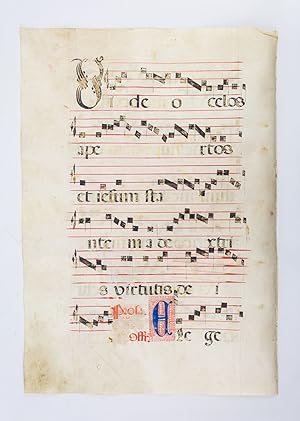 Video celos
apertos
et iesum stan
antem a dextri
is virtutis dei
Offr. Elege